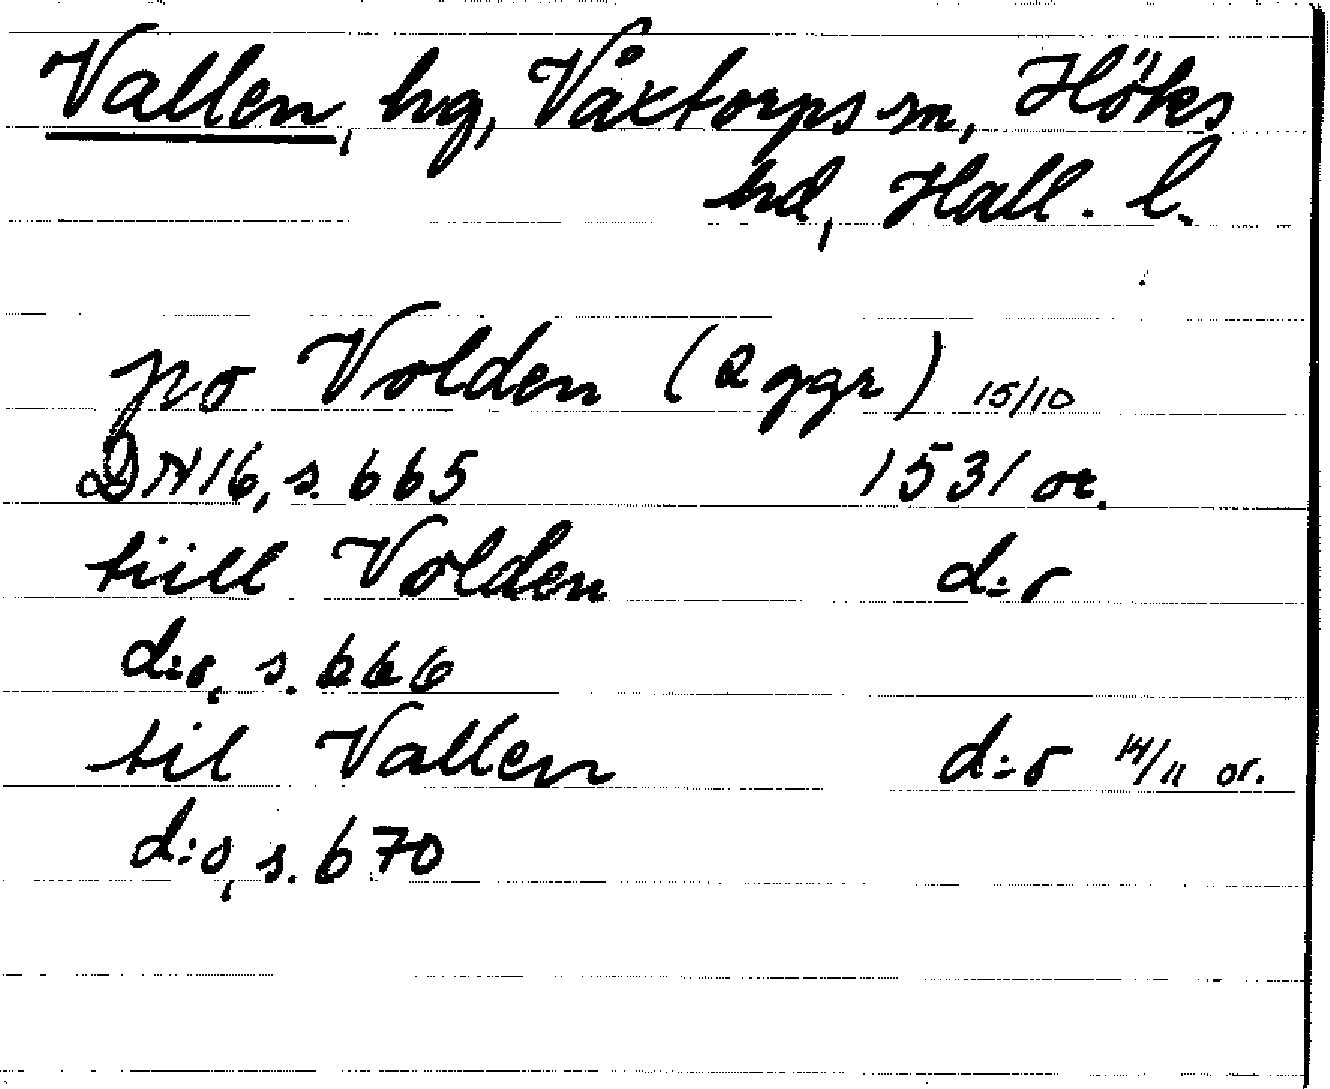 Vallen, hg, Våxtorps sn, Höks
hd, Hall. l.
po Volden (2 ggr) 15/10
DN 16, s. 665 1531 or.
tiill Volden d:o
d:o, s. 666
til Vallen d:o 14/11 or.
d:o, s. 670